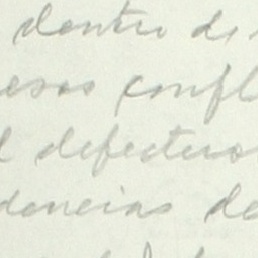 dentro de
esos confl
l defectuos
dencias de